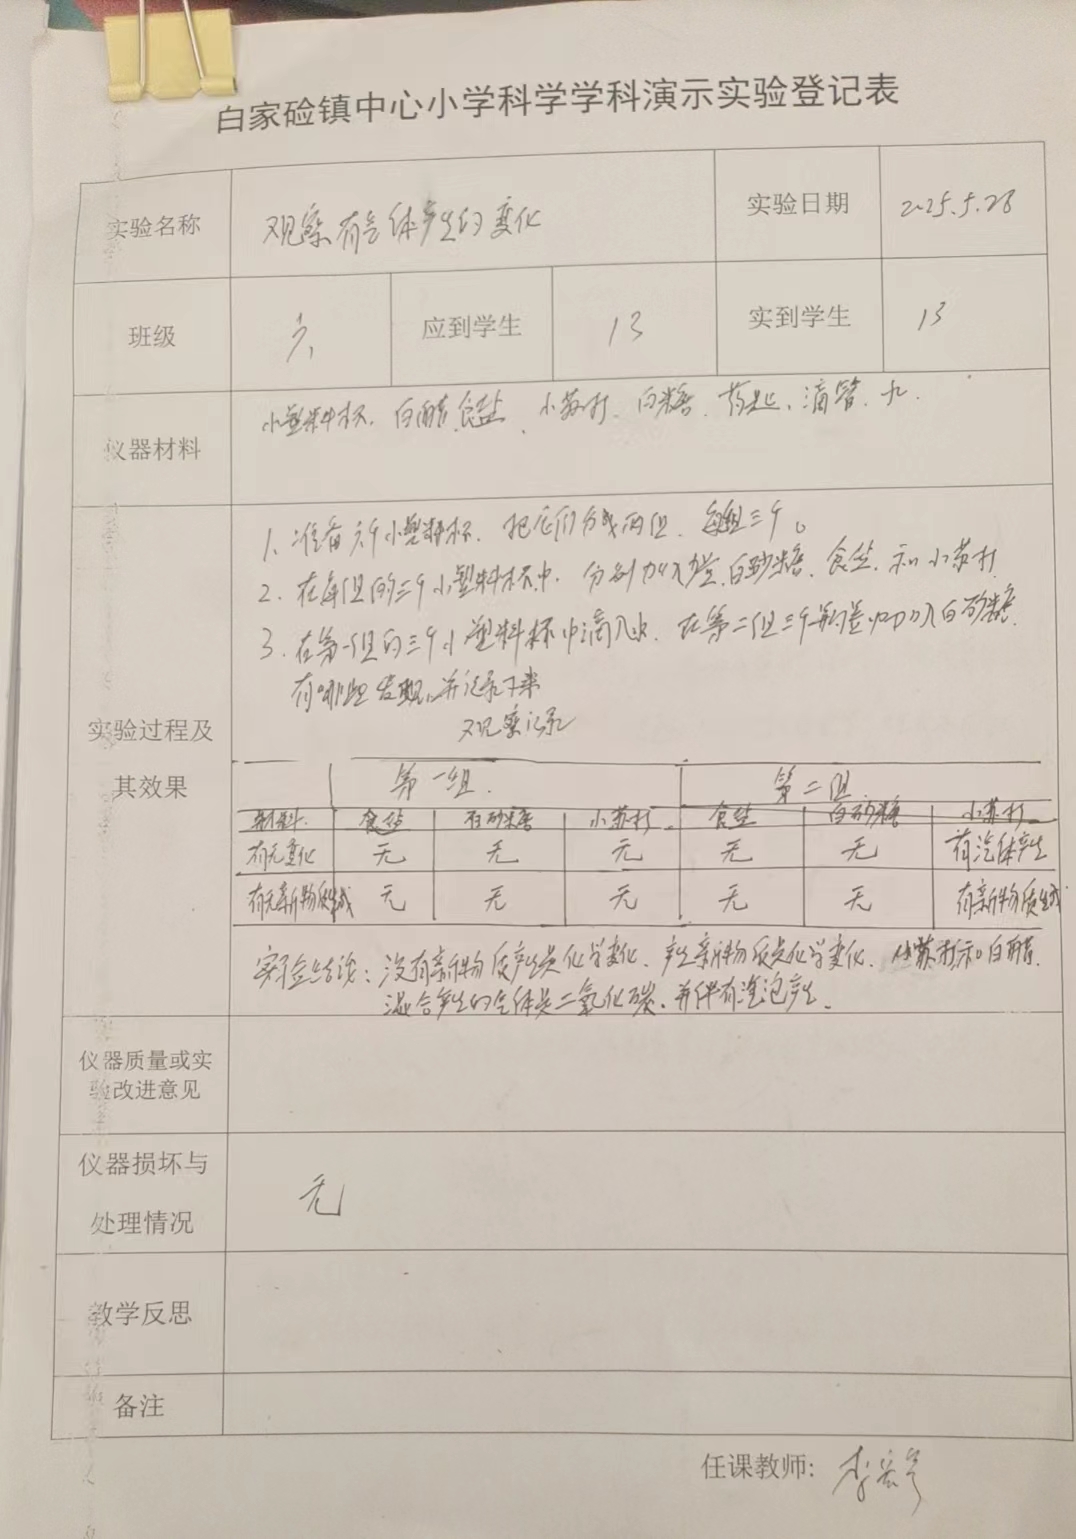 白家硷镇中心小学科学学科演示实验登记表
实验名称 观察有气体产生的变化 实验日期 2025.5.28
班级 六 应到学生 13 实到学生 13
仪器材料 小塑料杯、白醋、食盐、小苏打、白糖、药匙、滴管、
实验过程及其效果
1、准备六个小塑料杯、把它们分成两组、每组三个。
2、在每组的三个小塑料杯中、分别加入 白砂糖、食盐、和小苏打
3、在第一组的三个小塑料杯中滴入水、在第二组三个 加入白砂糖、
有哪些发现、并记录下来
观察记录
第一组 第二组
材料 食盐 白砂糖 小苏打 食盐 白砂糖 小苏打
有无变化 无 无 无 无 无 有汽体产生
有无新物质生成 无 无 无 无 无 有新物质生成
实验结论:没有新物质产生是化学变化、产生新物质是化学变化、小苏打和白醋
混合产生的气体是二氧化碳、并伴有泡产生、
仪器质量或实验改进意见
仪器损坏与处理情况 无
教学反思
备注
任课教师:李